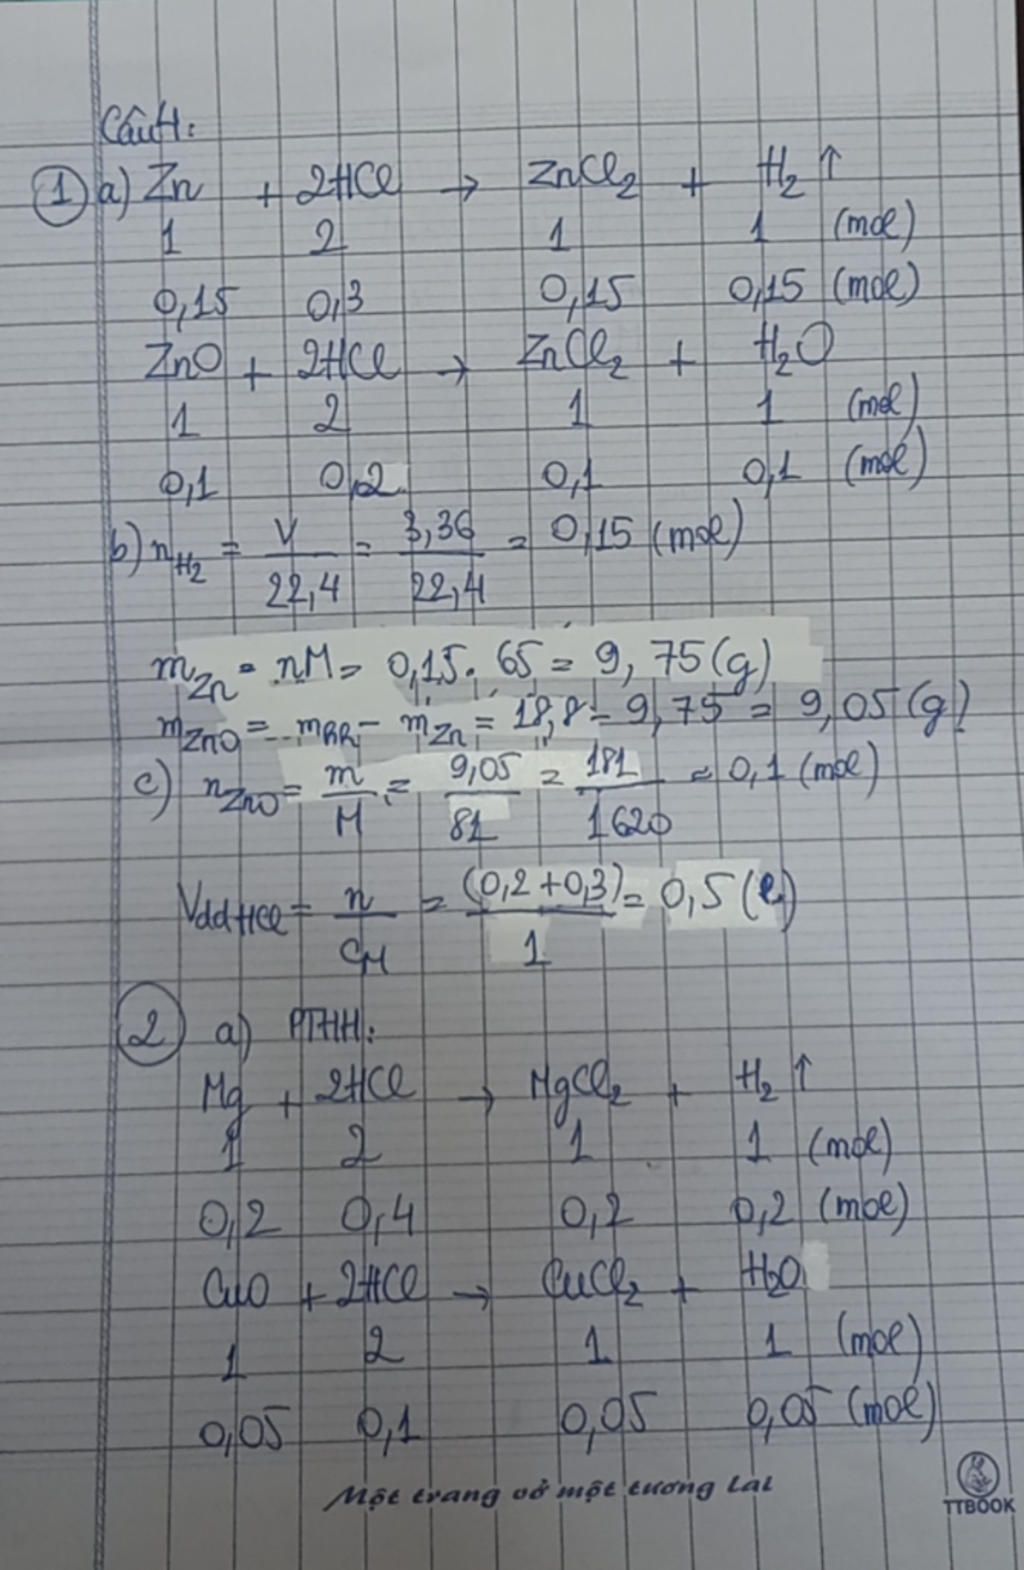 Câu 4:
① a) Zn + 2HCl → ZnCl₂ + H₂ ↑
1 2 1 1 (mol)
0,15 0,3 0,15 0,15 (mol)
ZnO + 2HCl → ZnCl₂ + H₂O
1 2 1 1 (mol)
0,1 0,2 0,1 0,1 (mol)
b) nH₂ = V/22,4 = 3,36/22,4 = 0,15 (mol)
mZn = nM = 0,15.65 = 9,75(g)
mZnO = mhh - mZn = 18,8 - 9,75 = 9,05(g)
c) nZnO = m/M = 9,05/81 = 181/1620 ≈ 0,1 (mol)
VddHCl = n/CM = (0,2+0,3)/1 = 0,5(l)
② a) PTHH:
Mg + 2HCl → MgCl₂ + H₂ ↑
1 2 1 1 (mol)
0,2 0,4 0,2 0,2 (mol)
CuO + 2HCl → CuCl₂ + H₂O
1 2 1 1 (mol)
0,05 0,1 0,05 0,05 (mol)
Một trang vở một tương lai
TTBOOK